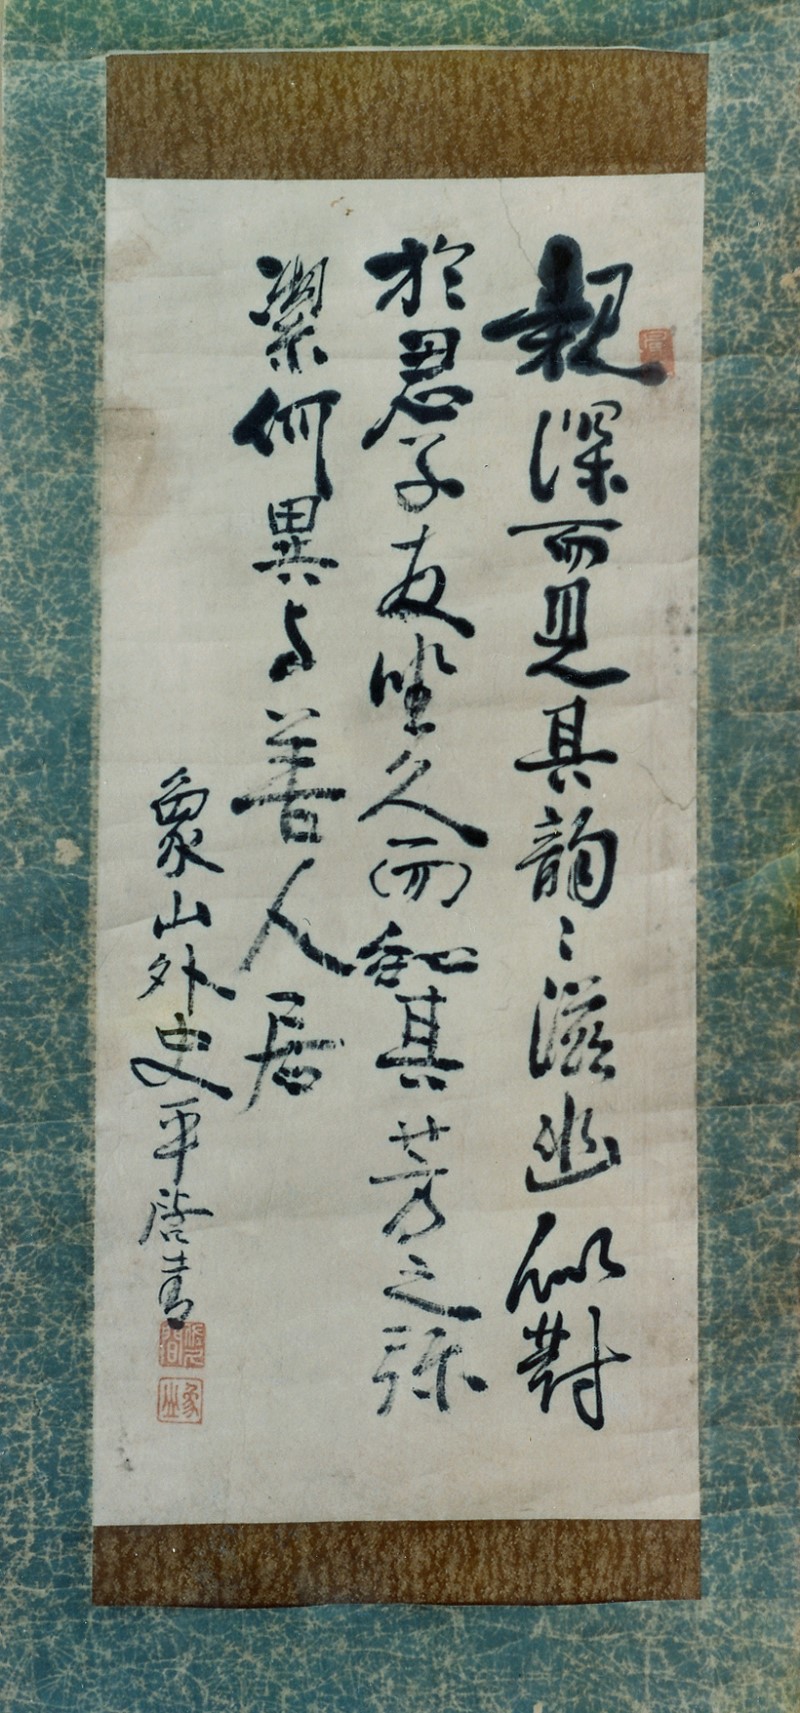 親深而見其韻〻滋幽似對
於君子友坐久而知其芳之弥
潔何異与善人居
象山外史平啓書
象山